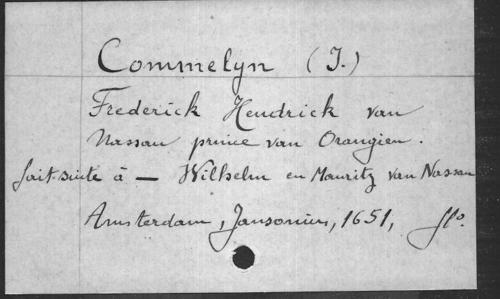 Commelyn (I.)
Frederick Hendrick van
Nassau prince van Orangien.
fait suite à — Wilhelm en Mauritz van Nassau
Amsterdam, Jansonius, 1651, flo.